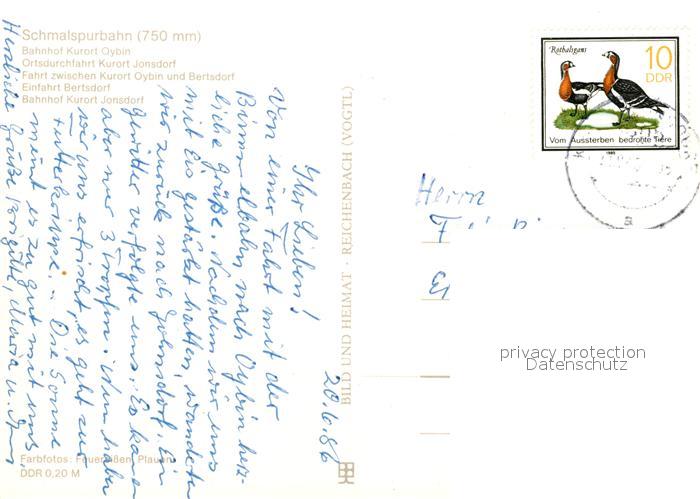 Schmalspurbahn (750 mm)
Bahnhof Kurort Oybin
Ortsdurchfahrt Kurort Jonsdorf
Fahrt zwischen Kurort Oybin und Bertsdorf
Einfahrt Bertsdorf
Bahnhof Kurort Jonsdorf
20.6.86
Ihr Lieben!
Von einer Fahrt mit der
Bimmelbahn nach Oybin herz-
liche Grüße. Nachdem wir uns
mit Eis gestärkt hatten, wanderten
wir zurück nach Ein
Gewitter verfolgte uns. Es kamen
aber nur 3 Tropfen. Nun haben
wir uns erfrischt, es geht zur
Die Sonne
meint es zu gut mit uns.
Herzliche Grüße Brigitte, Maria u.
Farbfotos: Plauen
DDR 0,20 M
BILD UND HEIMAT · REICHENBACH (VOGTL)
Rothalsgans
10
DDR
Vom Aussterben bedrohte Tiere
1985
Herrn
privacy protection
Datenschutz